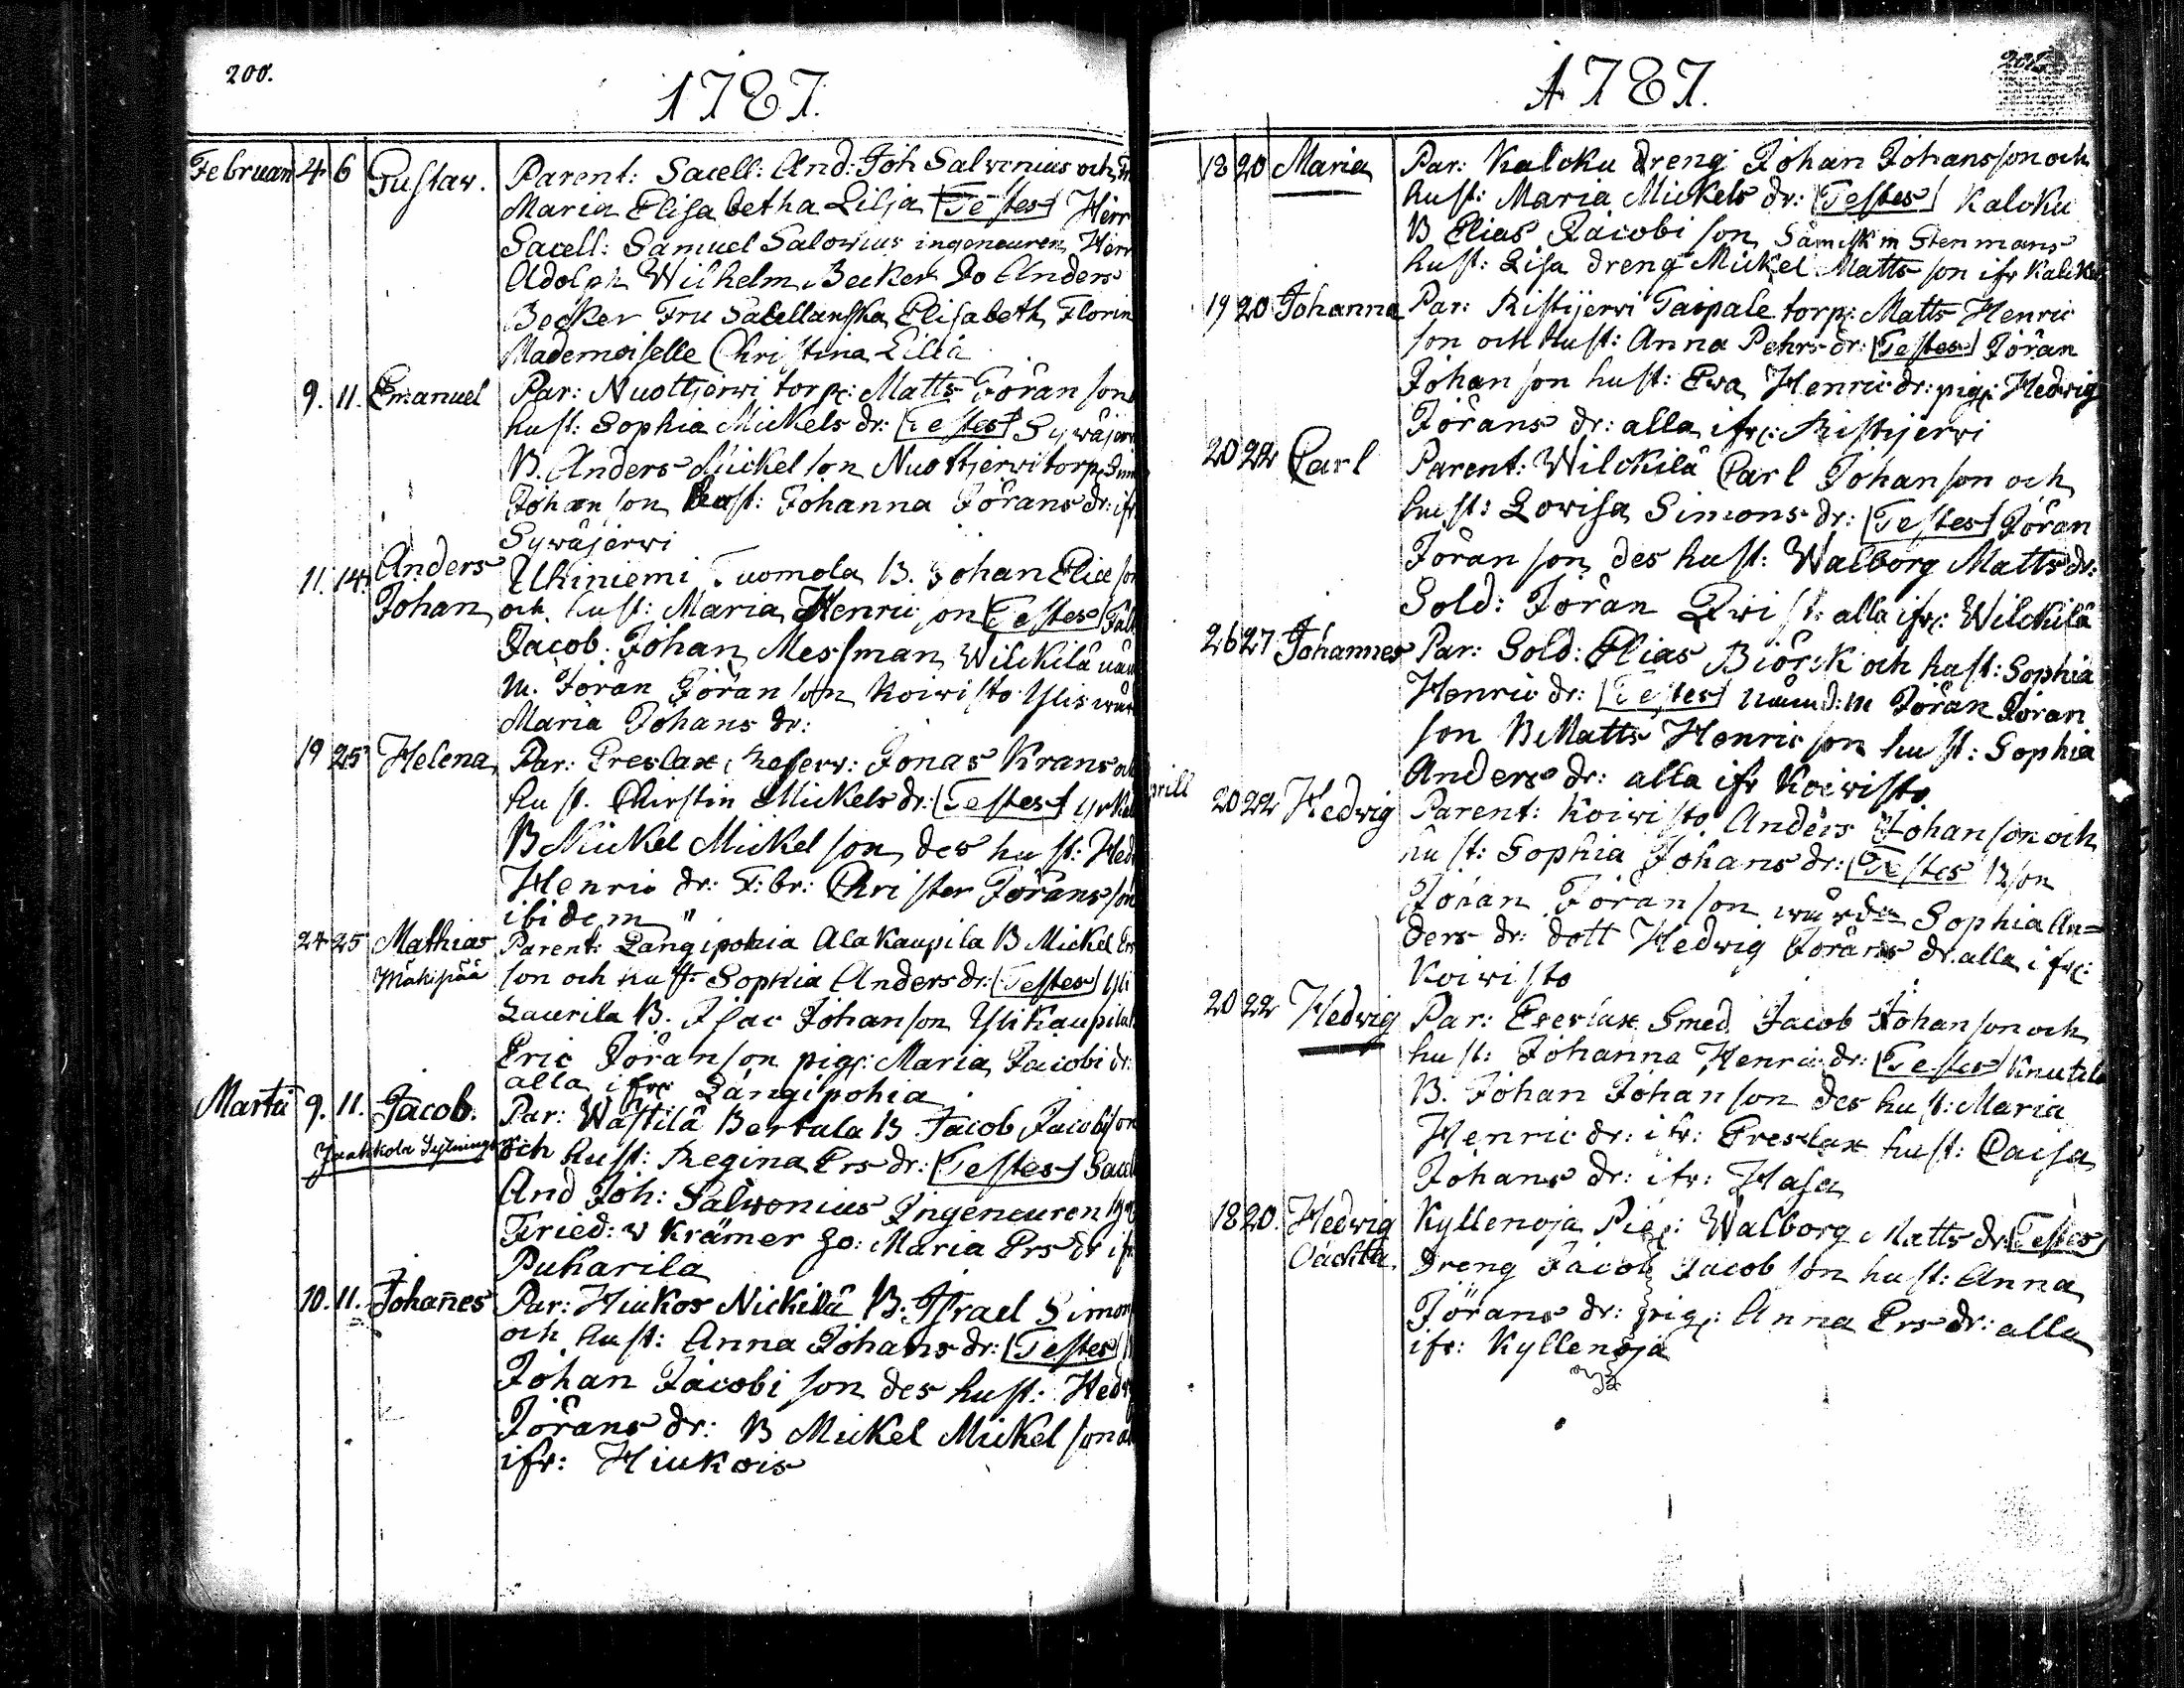 200.
1787.
Februari 4 6 Gustav. Parent: Sacell: And: Joh Salvenius och
Maria Elisabetha Lilja [Testes] Herr
Sacell: Samuel Salovius ingeneuren Herr
Adolph Wilhelm Becker Do Anders
Becker Fru Sacellanska Elisabeth Florin
Mademoiselle Christina Lilia
9. 11. Emanuel Par: Nuottjerwi torp: Matts Jöran son
hust: Sophia Mickels dr: [Testes] Sywäjerwi
B. Anders Mickel son Nuottjerwi torp:
Johan son hust: Johanna Jörans dr: ifr
Sywäjerwi
11. 14. Anders Uhiniemi Tuomola B. Johan Elie son
Johan och hust: Maria Henric son [Testes]
Jacob Johan Messman Wilckilä näm
m. Jöran Jöran son Koivisto Ylis
Maria Johans dr:
19 25 Helena Par: Preslax reserv: Jonas Krans
hust. Chirstin Mickels dr: [Testes]
B Mickel Mickel son des hust: Hed
Henric dr: T: br: Christer Jörans son
ibidem "
24 25 Mathias Parent: Längipohia Ala Kaupila B Mickel Ers
Mäkipää son och hust: Sophia Anders dr: [Testes] Yli
Laurila B. Isac Johan son Yli Kaupila
Eric Jöran son pig: Maria Jacobi dr:
alla ifr: Längipohia
Martii 9. 11. Jacob. Par: Wästilä Bertula B Jacob Jacobi son
Jaakkola Sytning och hust: Regina Ers dr: [Testes] Sacell
And Joh: Salwenius Ingeneuren
Fried: v Krämer Jo: Maria Ers dr ifr
Puharila
10. 11. Johañes Par: Hiukos Nickilä B. Israel Simon
och hust: Anna Johans dr: [Testes]
Johan Jacobi son des hust: Hedw
Jörans dr: B Mickel Mickel son
ifr: Hiukois
1787.
18 20 Maria Par: Kalcku dreng Johan Johansson och
hust: Maria Mickels dr: [Testes] Kalcku
B Elias Jacobi son Stenmans
hust: Lisa dreng Mickel Matts son ifr Kalcku
19 20 Johanna Par: Ristijerwi Taipale torp: Matts Henric
son och hust: Anna Pehrs dr: [Testes] Jöran
Johan son hust: Ewa Henric dr: pig: Hedwig
Jörans dr: alla ifr: Ristijerwi
20 22 Carl Parent: Wilckilä Carl Johan son och
hust: Lovisa Simons dr: [Testes] Jöran
Jöran son des hust: Walborg Matts dr:
Sold: Jöran Qwist: alla ifr: Wilckilä
26 27 Johannes Par: Sold: Elias Biörck och hust: Sophia
Henric dr: [Testes] nämd: m Jöran Jöran
son B Matts Henric son hust: Sophia
Anders dr: alla ifr Koivisto
prill 20 22 Hedwig Parent: Koivisto Anders Johan son och
hust: Sophia Johans dr: [Testes] B son
Jöran Jöran son Sophia An=
ders dr: dott Hedwig Jörans dr. alla ifr:
Koivisto
20 22 Hedwig Par: Preslax Smed Jacob Johan son och
hust: Johanna Henric dr: [Testes] Knutila
B. Johan Johan son des hust: Maria
Henric dr: ifr: Preslax hust: Caisa
Johans dr: ifr: Hasa
18 20. Hedwig Kyllenoja Pig: Walborg Matts dr: [Testes]
Oächta. dreng Jacob Jacob son hust: Anna
Jörans dr: pig: Anna Ers dr: alla
ifr: Kyllenoja